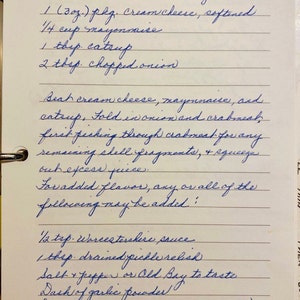 1 (3oz.) pkg. cream cheese, softened
1/4 cup mayonnaise
1 tbsp catsup
2 tbsp chopped onion
Beat cream cheese, mayonnaise, and
catsup, Fold in onion and crabmeat,
first fishing through crabmeat for any
remaining shell fragments, & squeeze
out excess juice.
For added flavor, any or all of the
following may be added :
1/2 tsp. Worcestershire sauce
1 tbsp. drained pickle relish
Salt & pepper or Old Bay to taste
Dash of garlic powder